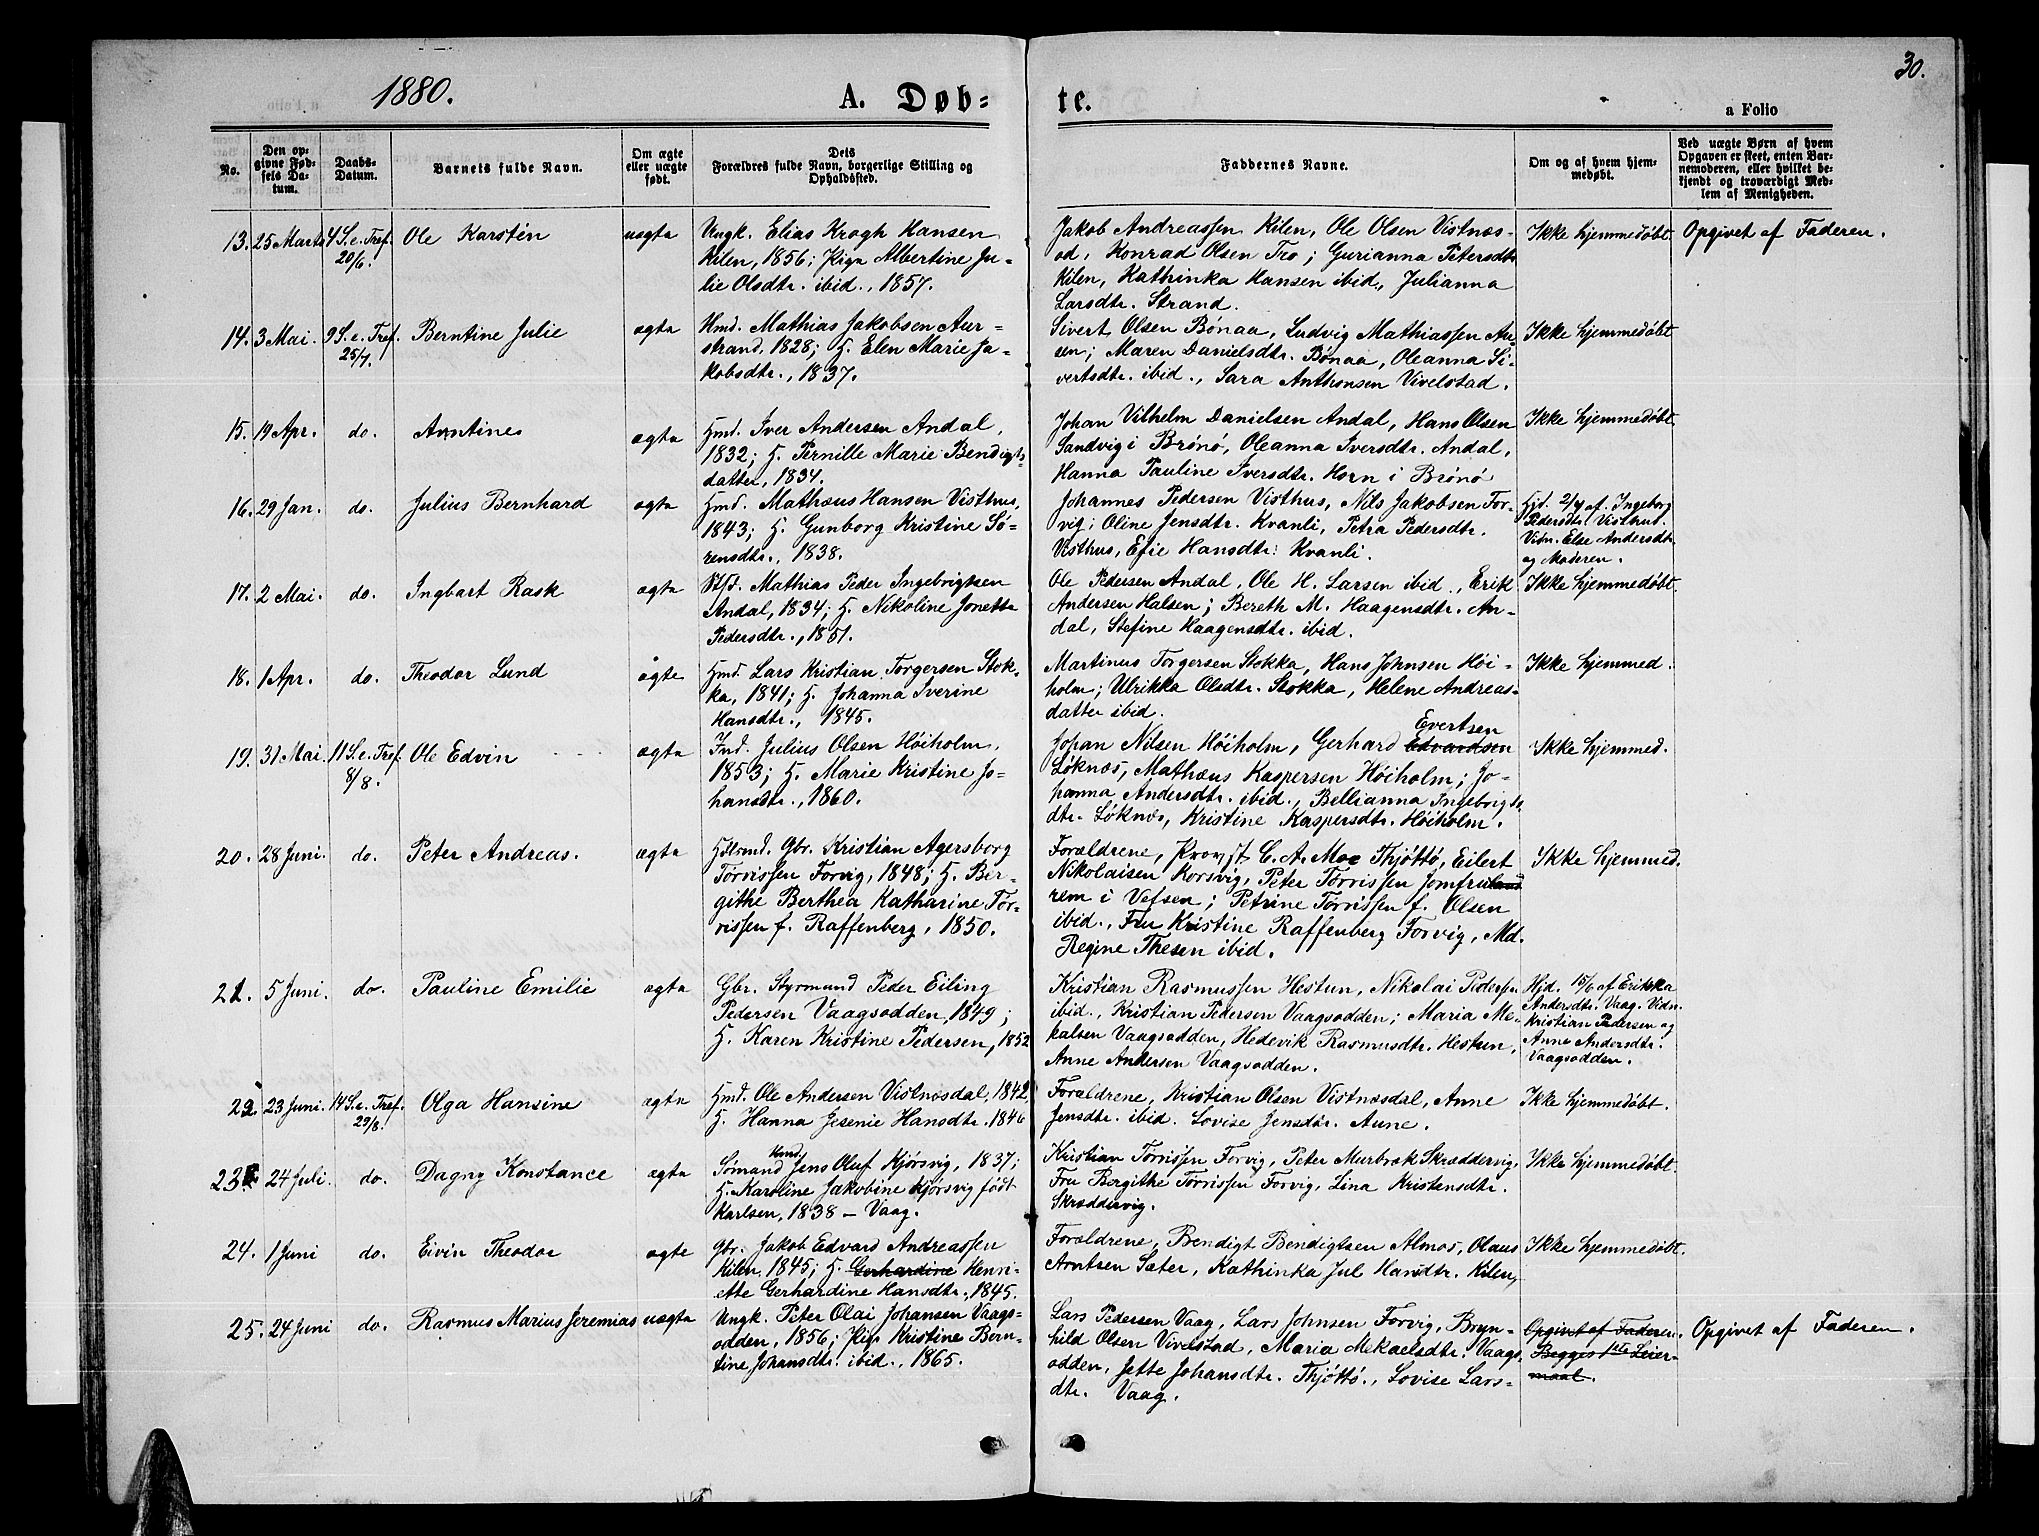 1880.
A. Døb=
te.
30.
a Folio
No.
Den op-
givne Fød-
sels Da-
tum.
Daabs-
Datum.
Barnets fulde Navn.
Om ægte
eller uægte
født.
Dets
Forældres fulde Navn, borgerlige Stilling og
Opholdssted.
Faddernes Navne.
Om og af hvem hjem-
medøbt.
Ved uægte Børn af hvem
Opgaven er skeet, enten Bar-
nemoderen, eller hvilket be-
kjendt og troværdigt Med-
lem af Menigheden.
13. 25 Marts 4 S. e. Tref. 20/6. Ole Karstén uægta
Ungk. Elias Krogh Hansen
Kilen, 1856; Pige Albertine Ju-
lie Olsdtr. ibid., 1857.
Jakob Andreassen Kilen, Ole Olsen Vistnæs-
od, Konrad Olsen Tro; Gurianna Petersdtr.
Kilen, Kathrinka Hansen ibid., Julianna
Larsdtr. Strand.
Ikke hjemmedøbt. Opgivet af Faderen.
14. 3 Mai. 9 S. e. Tref. 25/7. Berntine Julie ægta
Hmd. Mathias Jakobsen Aur-
strand, 1828; H. Elen Marie Ja-
kobsdtr., 1837.
Sivert Olsen Bønaa, Ludvig Mathiassen Au-
sen; Maren Danielsdtr. Bønaa, Oleanna Si-
vertsdtr. ibid., Sara Anthonsen Vivelstad.
Ikke hjemmedøbt
15. 19 Apr. do. Arntine ægta
Hmd. Iver Andersen Andal,
1832; H. Pernille Marie Bendigts-
datter, 1834.
Johan Vilhelm Danielsen Andal, Hans Olsen
Sandvig i Brønø, Oleanna Iversdtr. Andal,
Hanna Pauline Iversdtr. Horn i Brønø
Ikke hjemmedøbt.
16. 29 Jan. do. Julius Bernhard ægta
Hmd. Mathæus Hansen Visthus,
1843; H. Gunborg Kristine Sø-
rensdtr., 1838.
Johannes Pedersen Visthus, Nils Jakobsen For-
vig; Oline Jensdtr. Kvanli, Petra Pedersdtr.
Visthus, Efie Hansdtr. Kvanli.
Hjd. 2/4 af Ingeborg
Pedersdtr. Visthus.
Vidn. Else Andersdtr.
og Moderen.
17. 2 Mai. do. Ingbart Rask ægta
Stfd. Mathias Peder Ingebrigtsen
Andal, 1834; H. Nikoline Jonetta
Pedersdtr., 1851.
Ole Pedersen Andal, Ole H. Larsen ibid., Erik
Andersen Halsen; Bereth M. Haagensdtr. An-
dal, Stefine Haagensdtr. ibid.
Ikke hjemmedøbt.
18. 1 Apr. do. Theodor Lund ægte
Hmd. Lars Kristian Torgersen Stok-
ka, 1841; H. Johanna Iverine
Hansdtr., 1845.
Martinus Torgersen Stokka, Hans Johnsen Høi-
holm; Ulrikka Olsdtr. Stokka, Helene Andreas-
datter ibid.
Ikke hjemmed.
19. 31 Mai. 11 S. e. Tref. 8/8. Ole Edvin ægta
Ind. Julius Olsen Høiholm,
1853; H. Marie Kristine Jo-
hansdtr., 1860.
Evertsen
Johan Nilsen Høiholm, Gerhard Edvardsen
Løknæs, Mathæus Kaspersen Høiholm; Jo-
hanna Andersdtr. ibid., Bellianna Ingebrigts-
dtr. Løknæs, Kristine Kaspersdtr. Høiholm.
Ikke hjemmed.
20. 28 Juni. do. Peter Andreas. ægta
Hdlsmd. Gbr. Kristian Agersborg
Torrissen Forvig, 1848; H. Ber-
githe Berthea Katharine Tor-
rissen f. Raffenberg, 1850.
Forældrene, Provst C. A. Moe Thjøttø, Eilert
Nikolaisen Korsvig, Peter Torrissen Jomfruland
rem i Vefsen; Petrine Torrissen f. Olsen
ibid., Fru Kristine Raffenberg Forvig, Md.
Regine Thesen ibid.
Ikke hjemmed.
21. 5 Juni. do. Pauline Emilie ægta
Gbr. Styrmand Peder Eiling
Pedersen Vaagsodden, 1849;
H. Karen Kristine Pedersen, 1852
Kristian Rasmussen Hestun, Nikolai Pedersen
ibid., Kristian Pedersen Vaagsodden; Maria Me-
kalsen Vaagsodden, Hedevik Rasmusdtr. Hestun,
Anne Andersen Vaagsodden.
Hjd. 15/6 af Erikka
Andersdtr. Vaag. Vidn.
Kristian Pedersen og
Anne Andersdtr.
Vaagsodden.
22. 23 Juni. 14 S. e. Tref. 29/8. Olga Hansine ægta
Hmd. Ole Andersen Vistnæsdal, 1842,
H. Hanna Jesenie Hansdtr. 1846
Forældrene, Kristian Olsen Vistnæsdal, Anne
Jensdtr. ibid. Lovise Jensdtr. Aune.
Ikke hjemmedøbt.
23. 24 Juli. do. Dagny Konstance ægta
Hmd.
Sømand Jens Oluf Kjørsvig, 1837;
H. Karoline Jakobine Kjørsvig født
Karlsen, 1838 – Vaag.
Kristian Torrissen Forvig, Peter Murbræk Skræddervig,
Fru Bergithe Torrissen Forvig, Lina Kristensdtr.
Skræddervig.
Ikke hjemmedøbt
24. 1 Juni do. Eivin Theodor ægte
Gbr. Jakob Edvard Andreassen
Kilen, 1845; H. Gerhardine Henri-
ette Gerhardine Hansdtr., 1845.
Forældrene, Bendigt Bendigtsen Almos, Olaus
Arntsen Sæter, Kathrinka Jul Hansdtr. Kilen,
Ikke hjemmedøbt.
25. 24 Juni do. Rasmus Marius Jeremias uægta
Ungk. Peter Olai Johansen Vaags-
odden, 1856; Pige Kristine Bern-
tine Johansdtr. ibid., 1865.
Lars Pedersen Vaag, Lars Johnsen Forvig, Bryn-
hild Olsen Vivelstad, Maria Mekaelsdtr. Vaags-
odden, Jette Johansdtr. Thjøttø., Lovise Lars-
dtr. Vaag.
Opgivet af Faderen.
Begges 1ste Leier-
maal.
Opgivet af Faderen.